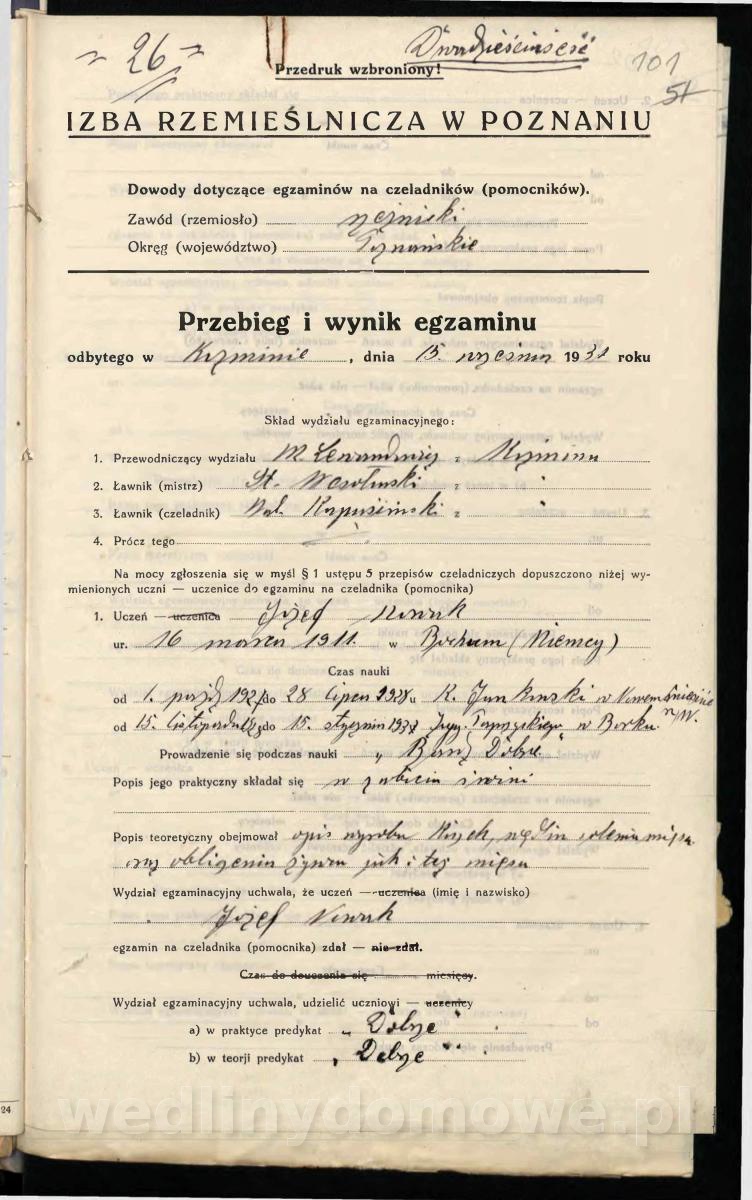 „ 26 "
Dwadzieściasześć
101
51
Przedruk wzbroniony!
IZBA RZEMIEŚLNICZA W POZNANIU
Dowody dotyczące egzaminów na czeladników (pomocników).
Zawód (rzemiosło) rzeźnicki
Okręg (województwo) Poznańskie
Przebieg i wynik egzaminu
odbytego w Krzminie, dnia 15. 1931 roku
Skład wydziału egzaminacyjnego:
1. Przewodniczący wydziału M. z
2. Ławnik (mistrz) St. z "
3. Ławnik (czeladnik) Wal. z "
4. Prócz tego
Na mocy zgłoszenia się w myśl § 1 ustępu 5 przepisów czeladniczych dopuszczono niżej wy-
mienionych uczni — uczenice do egzaminu na czeladnika (pomocnika)
1. Uczeń — uczenica Józef Nowak
ur. 16 marca 1911. w Bochum (Niemcy)
Czas nauki
od 1. paźdz 1927 do 28 lipca 1928 u K. Jankowski w Nowem Mieście
od 15. listopada do 15. stycznia w Borku n/W.
Prowadzenie się podczas nauki „Bardz Dobre"
Popis jego praktyczny składał się w zabiciu świni
Popis teoretyczny obejmował opis wyrobu kiszek, wędlin solenia mięsa
oraz obliczenia żywca jak i też mięsa
Wydział egzaminacyjny uchwala, że uczeń — uczenica (imię i nazwisko)
Józef Nowak
egzamin na czeladnika (pomocnika) zdał — nie zdał.
Czas do douczenia się miesięcy.
Wydział egzaminacyjny uchwala, udzielić uczniowi — uczenicy
a) w praktyce predykat „Dobrze"
b) w teorji predykat „Dobrze"
24
wedlinydomowe.pl